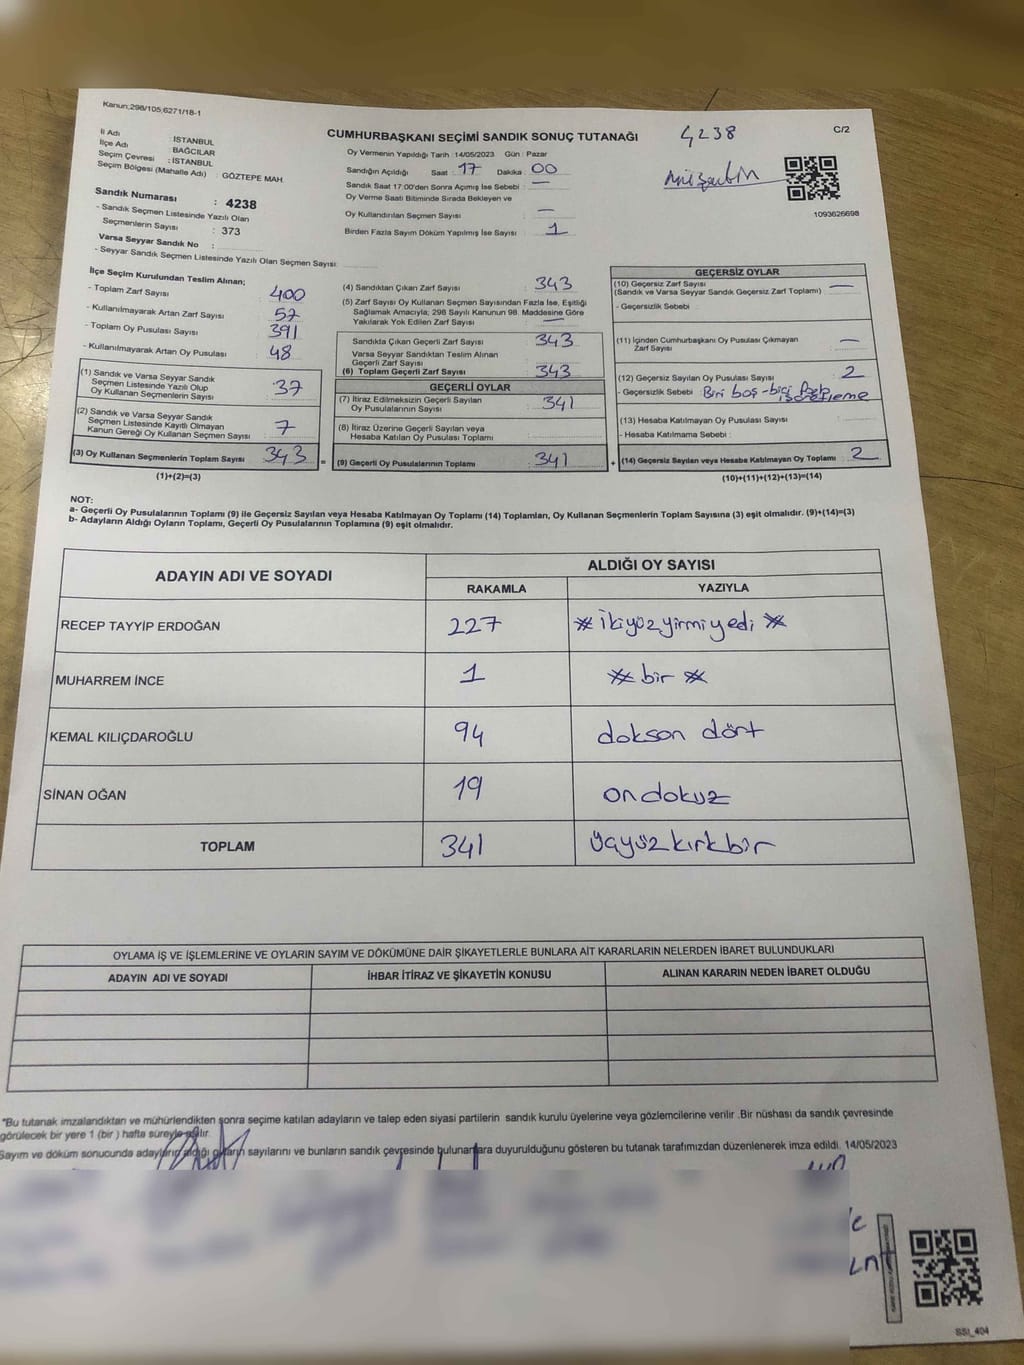 Kanun;298/105;6271/18-1
C/2
4238
İl Adı : İSTANBUL
İlçe Adı : BAĞCILAR
Seçim Çevresi : İSTANBUL
Seçim Bölgesi (Mahalle Adı) : GÖZTEPE MAH.
Sandık Numarası : 4238
- Sandık Seçmen Listesinde Yazılı Olan
Seçmenlerin Sayısı : 373
Varsa Seyyar Sandık No :
- Seyyar Sandık Seçmen Listesinde Yazılı Olan Seçmen Sayısı:
CUMHURBAŞKANI SEÇİMİ SANDIK SONUÇ TUTANAĞI
Oy Vermenin Yapıldığı Tarih : 14/05/2023 Gün : Pazar
Sandığın Açıldığı Saat : 17 Dakika : 00
Sandık Saat 17:00'den Sonra Açımış İse Sebebi : —
Oy Verme Saati Bitiminde Sırada Bekleyen ve
Oy Kullandırılan Seçmen Sayısı : —
Birden Fazla Sayım Döküm Yapılmış İse Sayısı : 1
1093626698
İlçe Seçim Kurulundan Teslim Alınan;
- Toplam Zarf Sayısı : 400
- Kullanılmayarak Artan Zarf Sayısı : 57
- Toplam Oy Pusulası Sayısı : 391
- Kullanılmayarak Artan Oy Pusulası : 48
(1) Sandık ve Varsa Seyyar Sandık
Seçmen Listesinde Yazılı Olup
Oy Kullanan Seçmenlerin Sayısı : 37
(2) Sandık ve Varsa Seyyar Sandık
Seçmen Listesinde Kayıtlı Olmayan
Kanun Gereği Oy Kullanan Seçmen Sayısı : 7
(3) Oy Kullanan Seçmenlerin Toplam Sayısı : 343
(1)+(2)=(3)
(4) Sandıktan Çıkan Zarf Sayısı : 343
(5) Zarf Sayısı Oy Kullanan Seçmen Sayısından Fazla İse, Eşitliği
Sağlamak Amacıyla; 298 Sayılı Kanunun 98. Maddesine Göre
Yakılarak Yok Edilen Zarf Sayısı : —
Sandıkta Çıkan Geçerli Zarf Sayısı : 343
Varsa Seyyar Sandıktan Teslim Alınan
Geçerli Zarf Sayısı :
(6) Toplam Geçerli Zarf Sayısı : 343
GEÇERLİ OYLAR
(7) İtiraz Edilmeksizin Geçerli Sayılan
Oy Pusulalarının Sayısı : 341
(8) İtiraz Üzerine Geçerli Sayılan veya
Hesaba Katılan Oy Pusulası Toplamı :
= (9) Geçerli Oy Pusulalarının Toplamı : 341
GEÇERSİZ OYLAR
(10) Geçersiz Zarf Sayısı : —
(Sandık ve Varsa Seyyar Sandık Geçersiz Zarf Toplamı)
- Geçersizlik Sebebi :
(11) İçinden Cumhurbaşkanı Oy Pusulası Çıkmayan
Zarf Sayısı : —
(12) Geçersiz Sayılan Oy Pusulası Sayısı : 2
- Geçersizlik Sebebi : Biri boş - biri
(13) Hesaba Katılmayan Oy Pusulası Sayısı :
- Hesaba Katılmama Sebebi :
+ (14) Geçersiz Sayılan veya Hesaba Katılmayan Oy Toplamı : 2
(10)+(11)+(12)+(13)=(14)
NOT:
a- Geçerli Oy Pusulalarının Toplamı (9) ile Geçersiz Sayılan veya Hesaba Katılmayan Oy Toplamı (14) Toplamları, Oy Kullanan Seçmenlerin Toplam Sayısına (3) eşit olmalıdır. (9)+(14)=(3)
b- Adayların Aldığı Oyların Toplamı, Geçerli Oy Pusulalarının Toplamına (9) eşit olmalıdır.
ADAYIN ADI VE SOYADI
ALDIĞI OY SAYISI
RAKAMLA YAZIYLA
RECEP TAYYİP ERDOĞAN 227 * ikiyüzyirmiyedi *
MUHARREM İNCE 1 * bir *
KEMAL KILIÇDAROĞLU 94 dokson dört
SİNAN OĞAN 19 ondokuz
TOPLAM 341 üçyüzkırkbir
OYLAMA İŞ VE İŞLEMLERİNE VE OYLARIN SAYIM VE DÖKÜMÜNE DAİR ŞİKAYETLERLE BUNLARA AİT KARARLARIN NELERDEN İBARET BULUNDUKLARI
ADAYIN ADI VE SOYADI İHBAR İTİRAZ VE ŞİKAYETİN KONUSU ALINAN KARARIN NEDEN İBARET OLDUĞU
*Bu tutanak imzalandıktan ve mühürlendikten sonra seçime katılan adayların ve talep eden siyasi partilerin sandık kurulu üyelerine veya gözlemcilerine verilir .Bir nüshası da sandık çevresinde
görülecek bir yere 1 (bir ) hafta süreyle asılır.
Sayım ve döküm sonucunda adayların aldığı oyların sayılarını ve bunların sandık çevresinde bulunanlara duyurulduğunu gösteren bu tutanak tarafımızdan düzenlenerek imza edildi. 14/05/2023
SSI_404